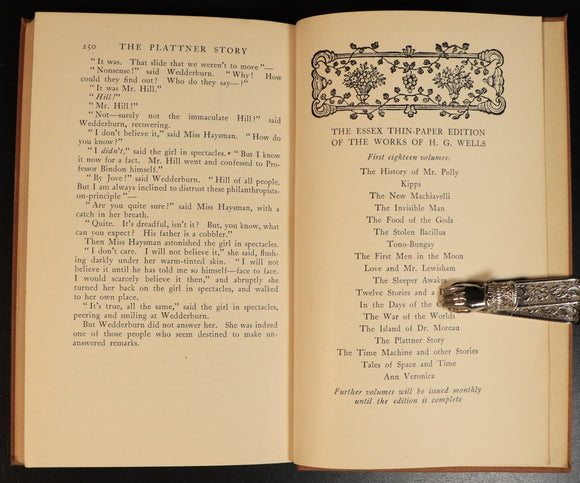 250 THE PLATTNER STORY
“It was. That slide that we weren't to move”—
“Nonsense!” said Wedderburn. “Why! How
could they find out? Who do they say—?”
“It was Mr. Hill.”
“Hill!”
“Mr. Hill!”
“Not—surely not the immaculate Hill?” said
Wedderburn, recovering.
“I don't believe it,” said Miss Haysman. “How do
you know?”
“I didn't,” said the girl in spectacles. “But I know
it now for a fact. Mr. Hill went and confessed to Pro-
fessor Bindon himself.”
“By Jove!” said Wedderburn. “Hill of all people.
But I am always inclined to distrust these philanthropists-
on-principle”—
“Are you quite sure?” said Miss Haysman, with a
catch in her breath.
“Quite. It's dreadful, isn't it? But, you know, what
can you expect? His father is a cobbler.”
Then Miss Haysman astonished the girl in spectacles.
“I don't care. I will not believe it,” she said, flush-
ing darkly under her warm-tinted skin. “I will not
believe it until he has told me so himself—face to face.
I would scarcely believe it then,” and abruptly she
turned her back on the girl in spectacles, and walked
to her own place.
“It's true, all the same,” said the girl in spectacles,
peering and smiling at Wedderburn.
But Wedderburn did not answer her. She was indeed
one of those people who seem destined to make un-
answered remarks.
THE ESSEX THIN-PAPER EDITION
OF THE WORKS OF H. G. WELLS
First eighteen volumes:
The History of Mr. Polly
Kipps
The New Machiavelli
The Invisible Man
The Food of the Gods
The Stolen Bacillus
Tono-Bungay
The First Men in the Moon
Love and Mr. Lewisham
The Sleeper Awakes
Twelve Stories and a
In the Days of the
The War of the Worlds
The Island of Dr. Moreau
The Plattner Story
The Time Machine and other Stories
Tales of Space and Time
Ann Veronica
Further volumes will be issued monthly
until the edition is complete